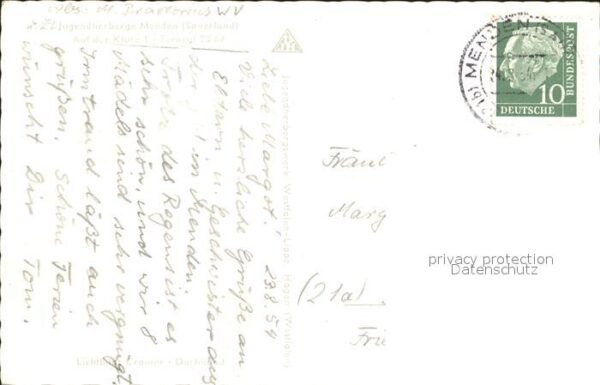 Abs. M. Praetorius WV
Jugendherberge Menden (Sauerland)
Auf der Kluse 1 - Fernruf 2564
23.8.54
Liebe Margot!
Viele herzliche Grüße an
Eltern u. Geschwister aus
der in Menden.
Trotz des Regens ist es
sehr schön, und wir 8
Mädels sind sehr vergnügt.
Irmtraud läßt auch
grüßen. Schöne Ferien
wünscht Dir Tom.
Jugendherbergswerk Westfalen-Lippe Hagen (Westfalen)
Cramer - Dortmund
MENDEN
10
DEUTSCHE
BUNDESPOST
Fräul
Marg
(21a)
Frie
privacy protection
Datenschutz